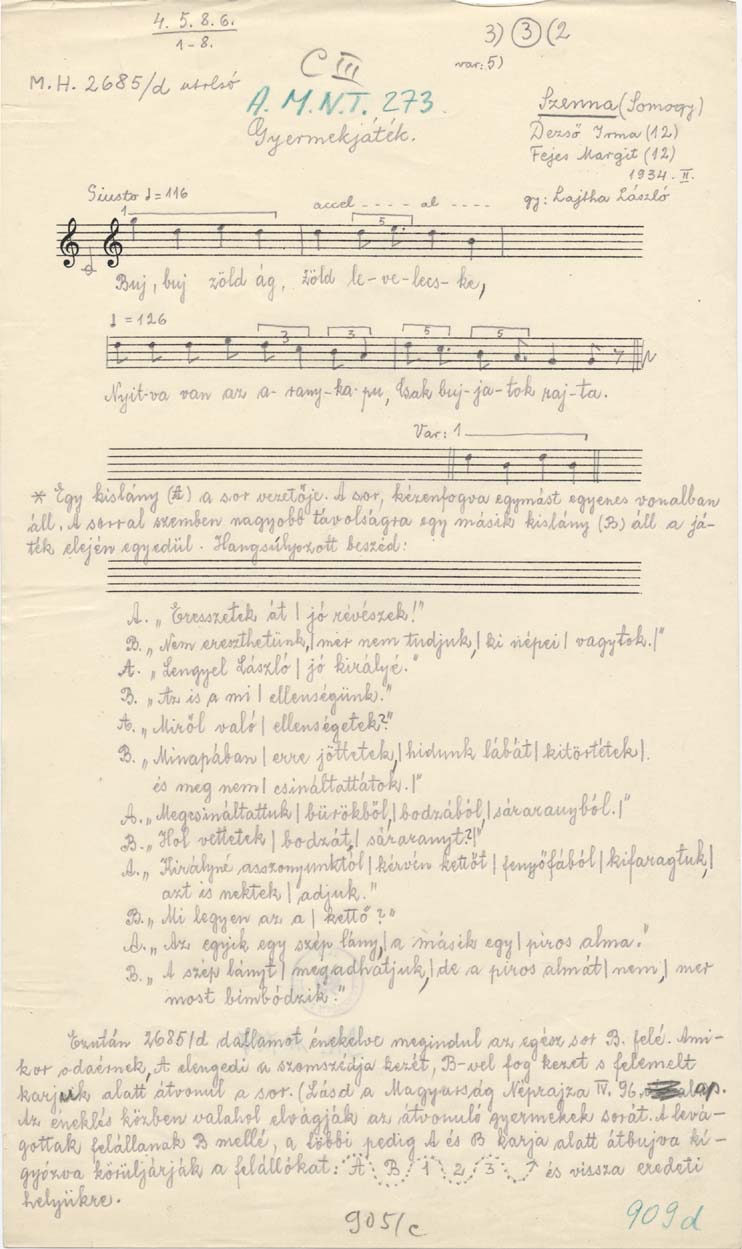 4. 5. 8. 6.
1-8.
3) 3 (2
var: 5)
C III
M.H. 2685/d utolsó
A.M.N.T. 273.
Gyermekjáték.
Szenna (Somogy)
Dezső Irma (12)
Fejes Margit (12)
1934. II.
gy: Lajtha László
Giusto ♩=116
accel - - - - al - - - -
1
5
Buj, buj zöld ág, zöld le-ve-lecs-ke,
♩=126
3 3 5 5
Nyit-va van az a-rany-ka-pu, Csak buj-ja-tok raj-ta.
Var: 1
* Egy kislány (A) a sor vezetője. A sor, kézenfogva egymást egyenes vonalban
áll. A sorral szemben nagyobb távolságra egy másik kislány (B) áll a já-
ték elején egyedül. Hangsúlyozott beszéd:
A. „Eresszetek át | jó révészek!"
B. „Nem ereszthetünk, | mer nem tudjuk, | ki népei | vagytok. |"
A. „Lengyel László | jó királyé."
B. „Az is a mi | ellenségünk."
A. „Miről való | ellenségetek?"
B. „Minapában | erre jöttetek, | hidunk lábát | kitörtétek |
és meg nem | csináltattátok. |"
A. „Megcsináltattuk | bürökből, | bodzából, | sáraranyból. |"
B. „Hol vettetek | bodzát, | sáraranyt? |"
A. „Királyné asszonyunktól | kérvén kettőt | fenyőfából | kifaragtuk, |
azt is nektek | adjuk."
B. „Mi legyen az a | kettő?"
A. „Az egyik egy szép lány, | a másik egy | piros alma."
B. „A szép lányt | megadhatjuk, | de a piros almát | nem, | mer
most bimbódzik."
Ezután 2685/d dallamot énekelve megindul az egész sor B. felé. Ami-
kor odaérnek, A elengedi a szomszédja kezét, B-vel fog kezet s felemelt
karjuk alatt átvonul a sor. (Lásd a Magyarság Néprajza IV. 96. lap.
Az éneklés közben valahol elvágják az átvonuló gyermekek sorát. A levá-
gottak felállanak B mellé, a többi pedig A és B karja alatt átbujva kí-
gyózva körüljárják a felállókat: A B 1 2 3 és vissza eredeti
helyükre.
905/c
909d